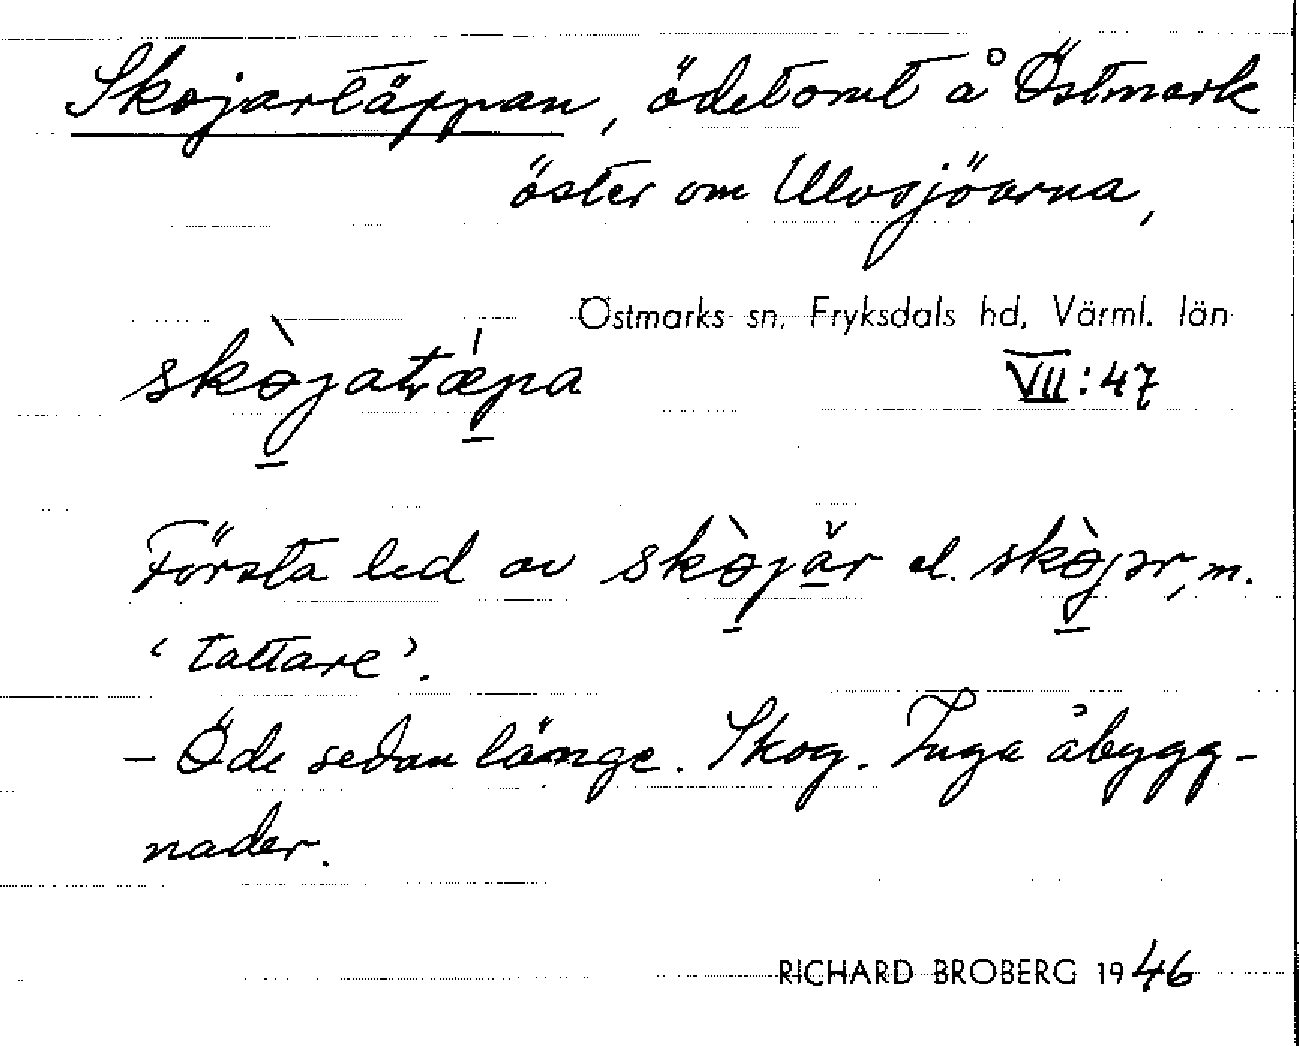 Skojartäppan, ödetomt å Östmark
öster om Ulvsjöarna,
Östmarks sn, Fryksdals hd, Värml. län
skòjatǽpa
VII:47
Första led av skòjăr el. skòjər, m.
‘tattare’.
– Öde sedan länge. Skog. Inga åbygg-
nader.
RICHARD BROBERG 1946